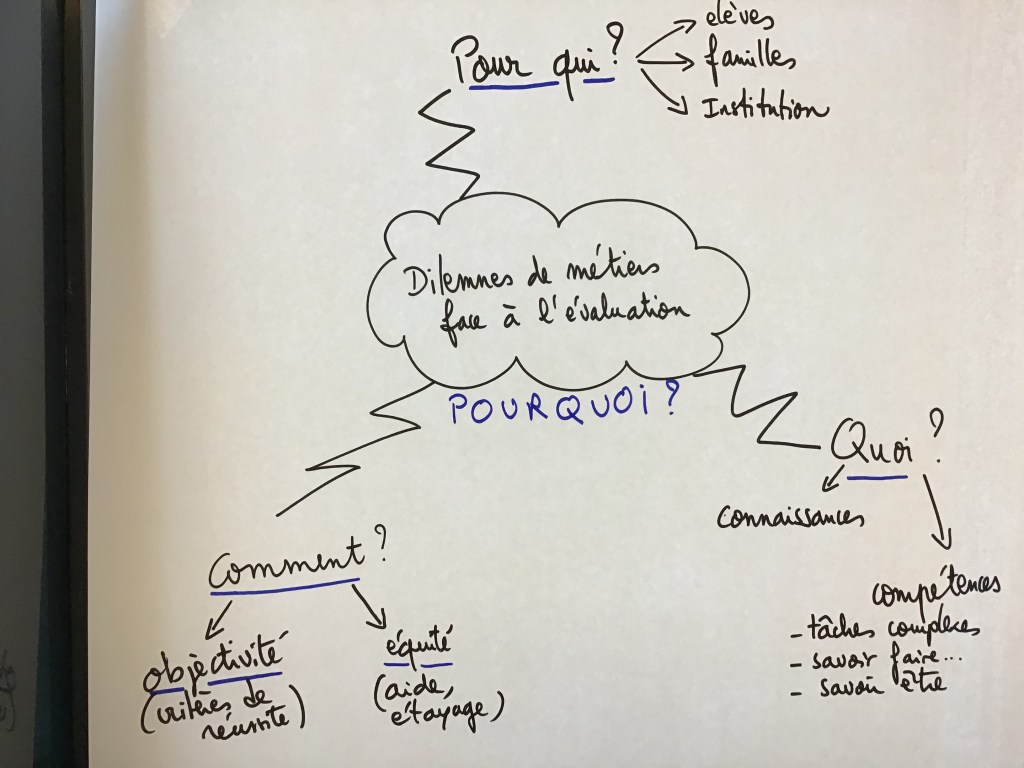 Pour qui ?
élèves
familles
Institution
Dilemnes de métiers
face à l'évaluation
POURQUOI ?
Quoi ?
connaissances
compétences
- tâches complexes
- savoir faire...
- savoir être
Comment ?
objectivité
(critères de
réussite)
équité
(aide,
étayage)